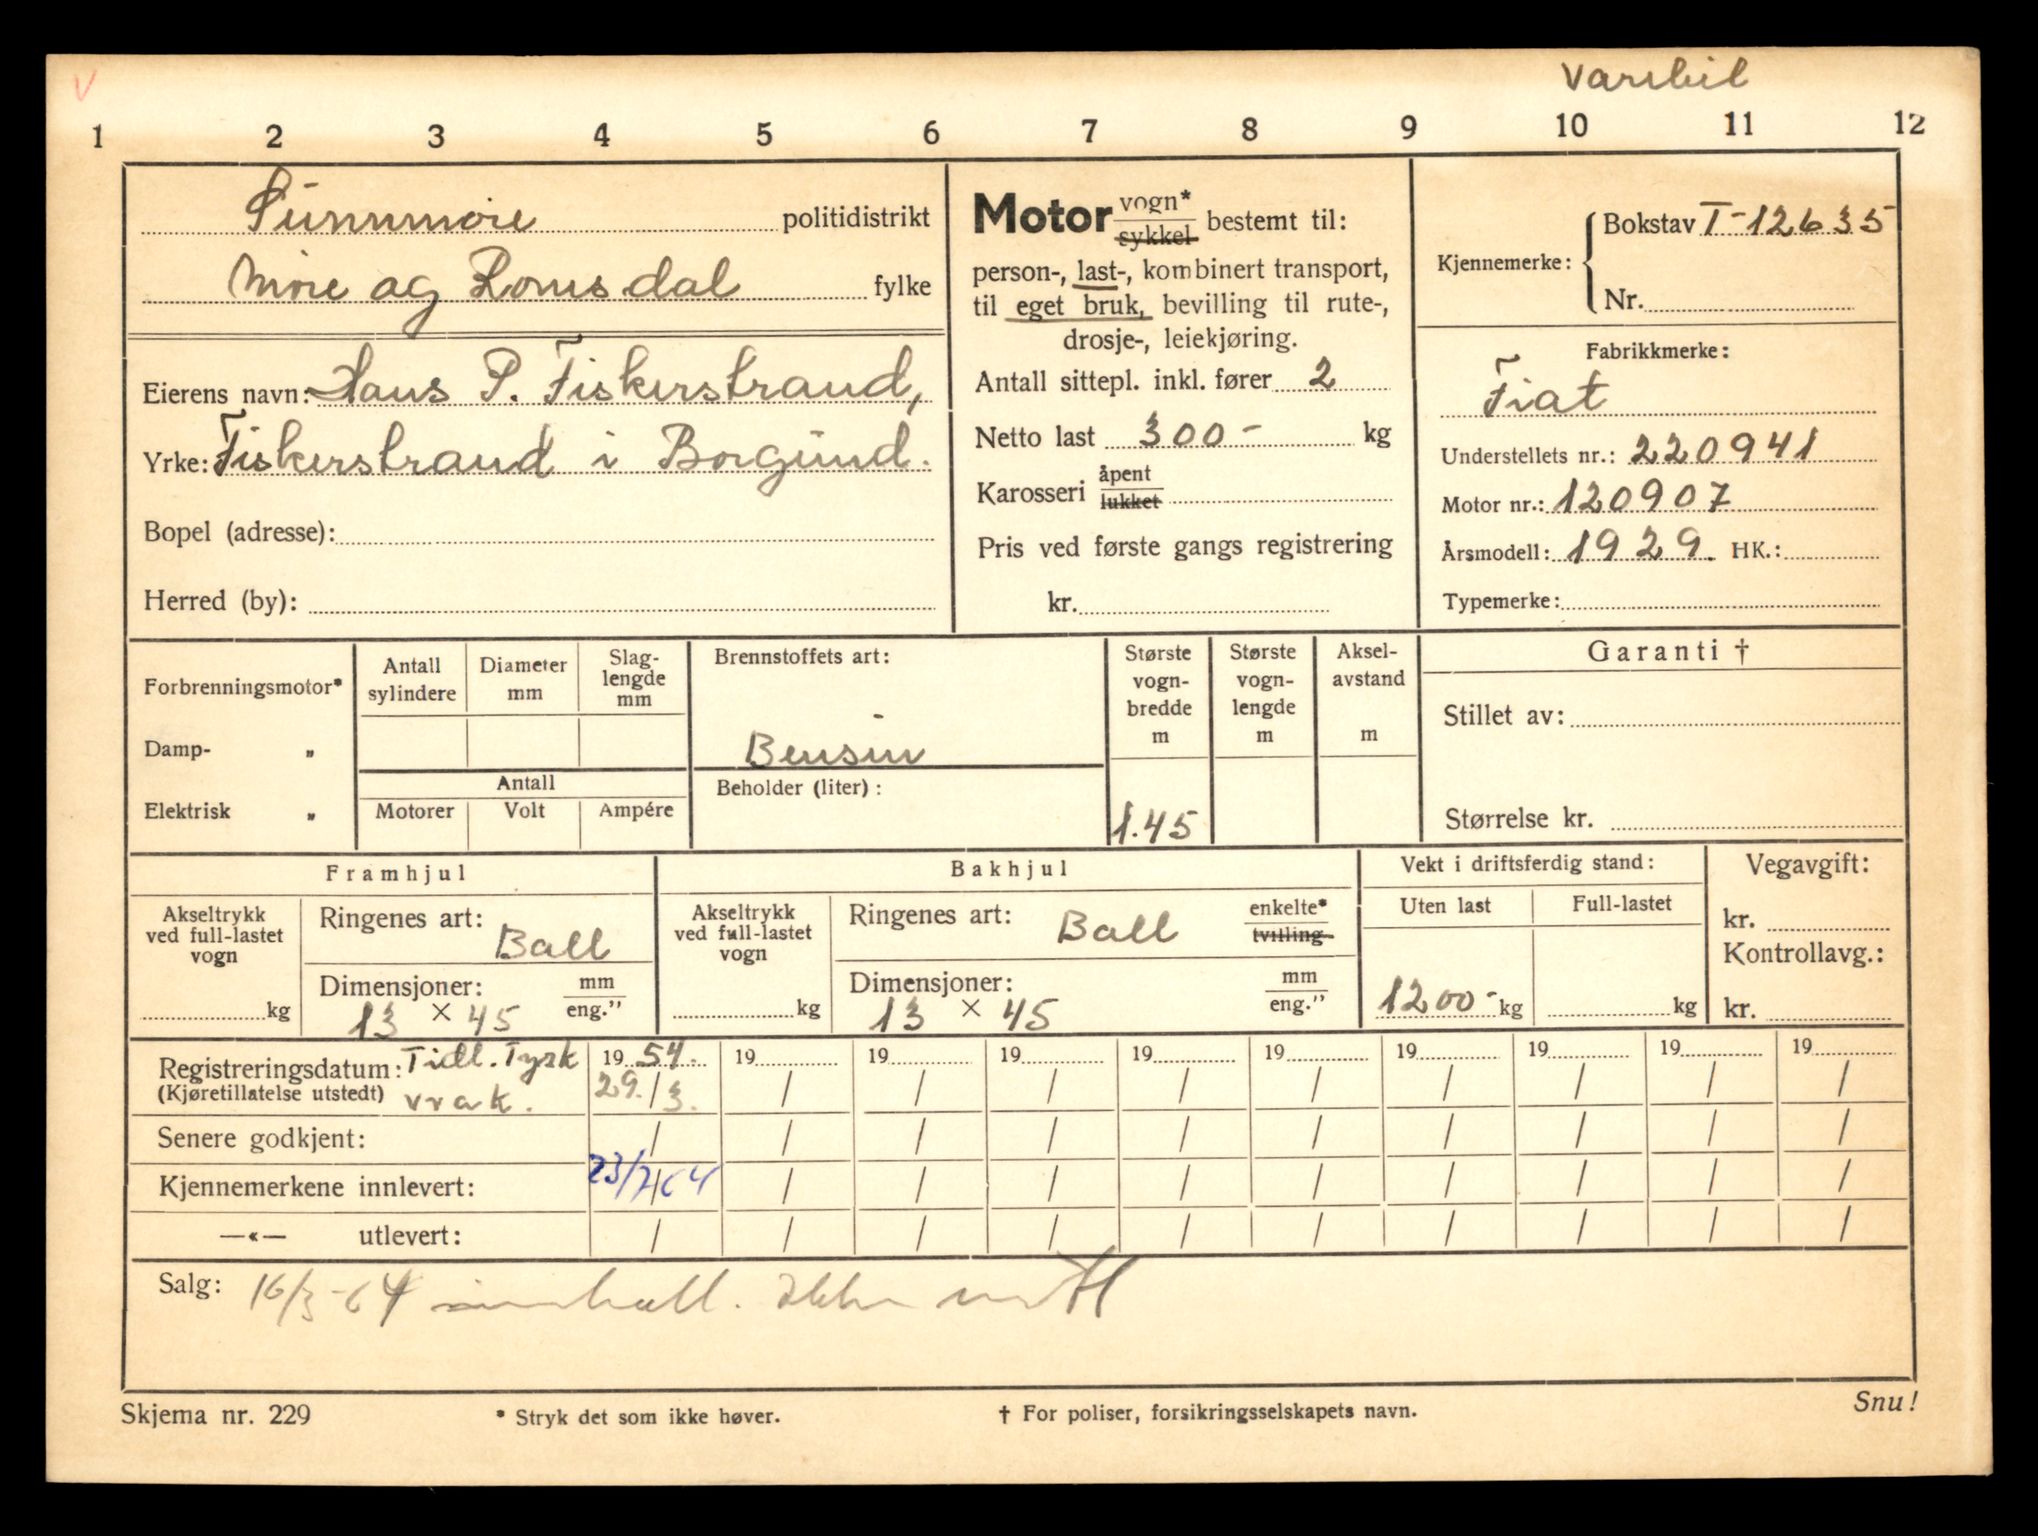 V
Varebil
1 2 3 4 5 6 7 8 9 10 11 12
Sunnmøre politidistrikt
Møre og Romsdal fylke
Eierens navn: Hans P. Fiskerstrand,
Yrke: Fiskerstrand i Borgund.
Bopel (adresse):
Herred (by):
Motor vogn* sykkel bestemt til:
person-, last-, kombinert transport,
til eget bruk, bevilling til rute-,
drosje-, leiekjøring.
Antall sittepl. inkl. fører 2
Netto last 300- kg
Karosseri åpent lukket
Pris ved første gangs registrering
kr.
Kjennemerke: Bokstav T-12635
Nr.
Fabrikkmerke:
Fiat
Understellets nr.: 220941
Motor nr.: 120907
Årsmodell: 1929. HK.:
Typemerke:
Forbrenningsmotor*
Damp- "
Elektrisk "
Antall sylindere
Diameter mm
Slag-lengde mm
Antall
Motorer Volt Ampére
Brennstoffets art:
Bensin
Beholder (liter):
Største vogn-bredde m
1.45
Største vogn-lengde m
Aksel-avstand m
Garanti †
Stillet av:
Størrelse kr.
Framhjul
Akseltrykk ved full-lastet vogn
kg
Ringenes art: Ball
Dimensjoner: mm eng."
13 × 45
Bakhjul
Akseltrykk ved full-lastet vogn
kg
Ringenes art: Ball enkelte* tvilling
Dimensjoner: mm eng."
13 × 45
Vekt i driftsferdig stand:
Uten last Full-lastet
1200- kg kg
Vegavgift:
kr.
Kontrollavg.:
kr.
Registreringsdatum: Tidl. Tysk 1954. 19 19 19 19 19 19 19 19 19
(Kjøretillatelse utstedt) vrak. 29./3. / / / / / / / / /
Senere godkjent: / / / / / / / / / /
Kjennemerkene innlevert: 23/7 64 / / / / / / / / /
—«— utlevert: / / / / / / / / / /
Salg: 16/3-64 Ikke
Skjema nr. 229 * Stryk det som ikke høver. † For poliser, forsikringsselskapets navn. Snu!